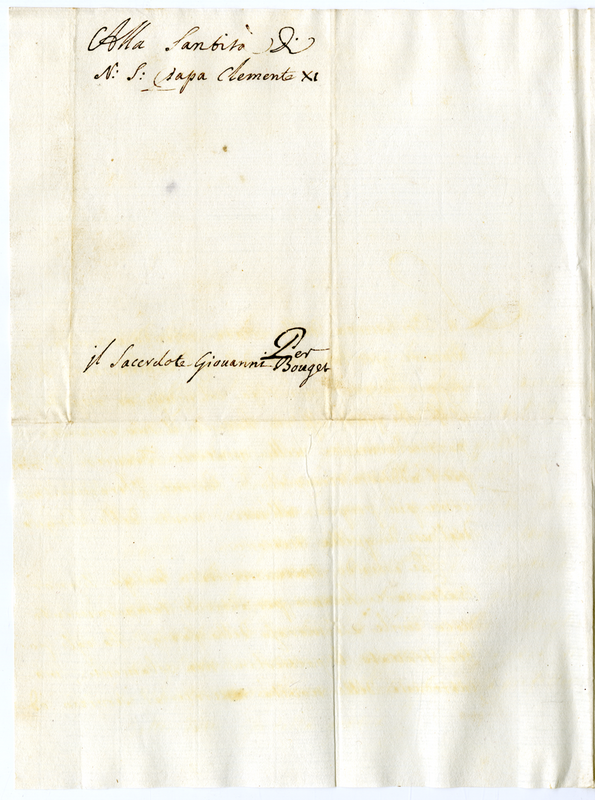 Alla Santità Di
N: S: Papa Clemente XI
Per
il Sacerdote Giouanni Bouget